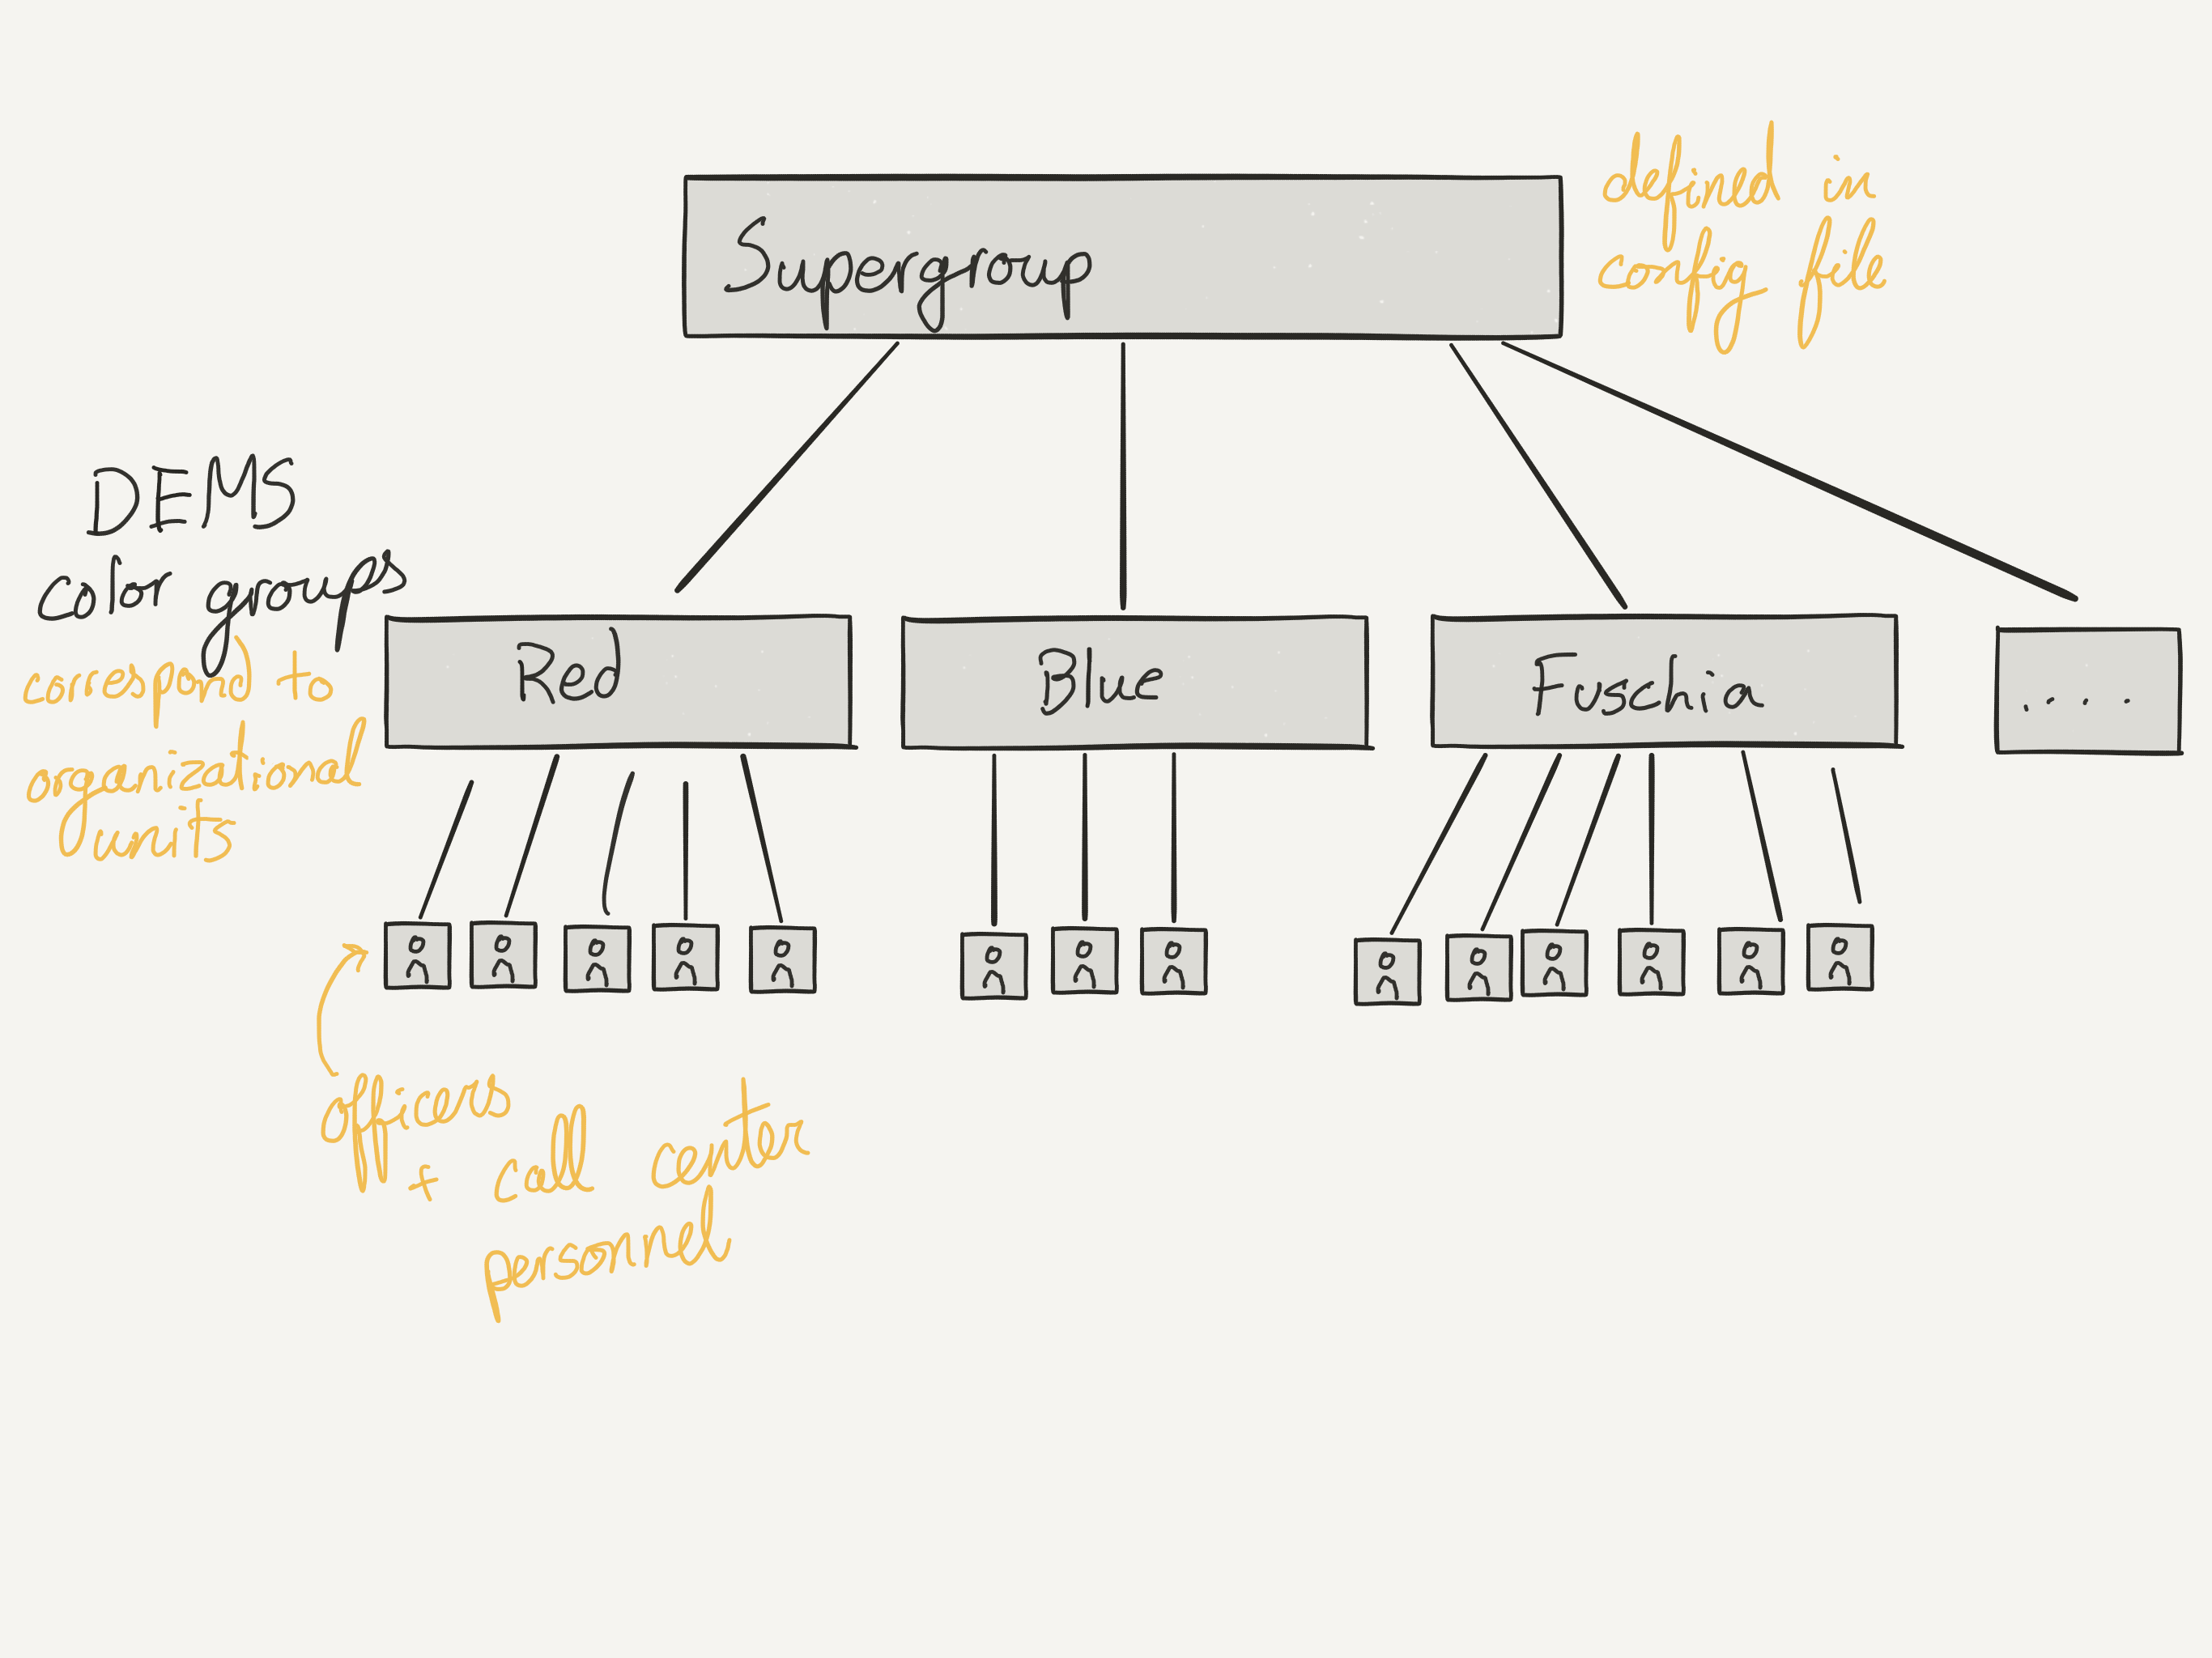 defined in
config file
Supergroup
DEMS
color groups
correspond to
organizational
units
Red
Blue
Fuschia
....
officers
+ call center
personnel